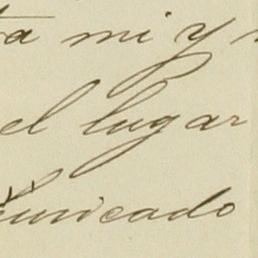 ta mi y
el lugar
unicado